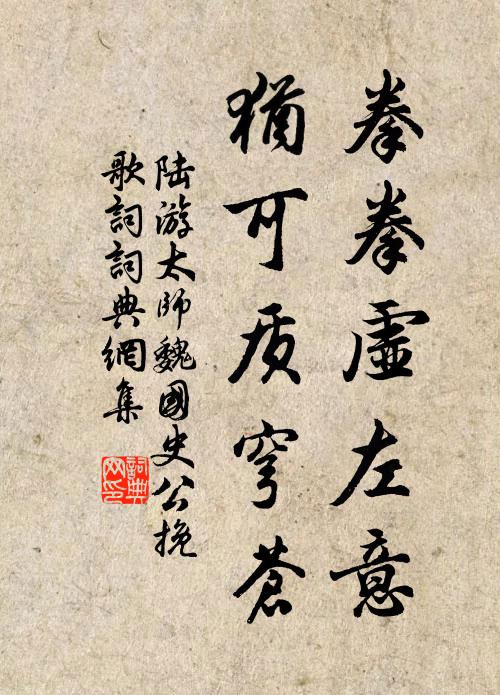 拳拳虛左意
猶可质穹蒼
陸游太師魏國史公挽
歌詞詞典網集
詞典网印